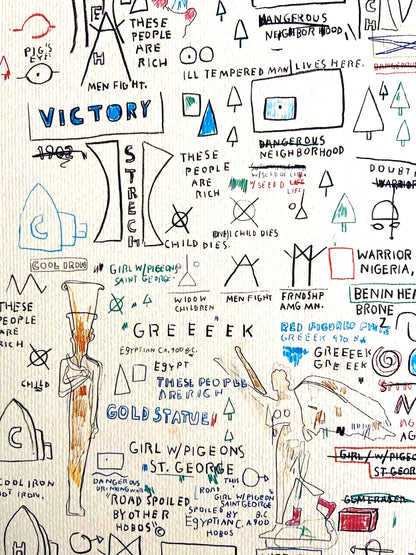 E
C
H
DANGEROUS
NEIGHBORHOOD
THESE
PEOPLE
ARE
RICH
PIG'S
EYE
ILL TEMPERED MAN LIVES HERE.
MEN FIGHT.
VICTORY
DANGEROUS
NEIGHBORHOOD
STRECH
THESE
PEOPLE
ARE
RICH
W/SEED OF LIFE
W/SEED OF LIFE
DOUBT
CHILD DIES.
CHILD DIES
C
WARRIOR
NIGERIA,
GIRL W/PIGEONS
SAINT GEORGE
WIDOW
CHILDREN
MEN FIGHT
FRNDSHP
AMG MN.
BENIN HE
BRONE
THESE
PEOPLE
ARE
RICH
GREEEEK
RED FIGURED
GREEEK 490 B.
EGYPTIAN CA. 900 B.C.
EGYPT
GREEEEK
GREEEK
THESE PEOPLE
ARE RICH
CHILD
GOLD STATUE
GIRL W/PIGEONS
ST. GEORGE
GIRL/W/PIGEO
ST. GEOR
C
COOL IRON
HOT IRON
DANGEROUS
DRINKING WATER
THIS
"ROAD SPOILED
BY OTHER
HOBOS"©
ROAD
GIRL W/PIGEON
SAINT GEORGE
SPOILED
BY B.C
EGYPTIAN C. A. 900
HOBOS